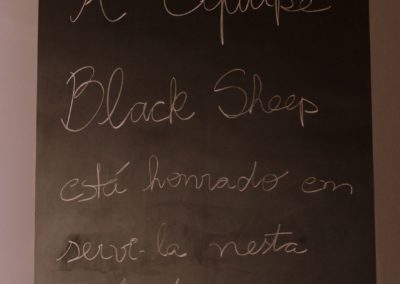 A Equipe
Black Sheep
está honrado em
servi-la nesta